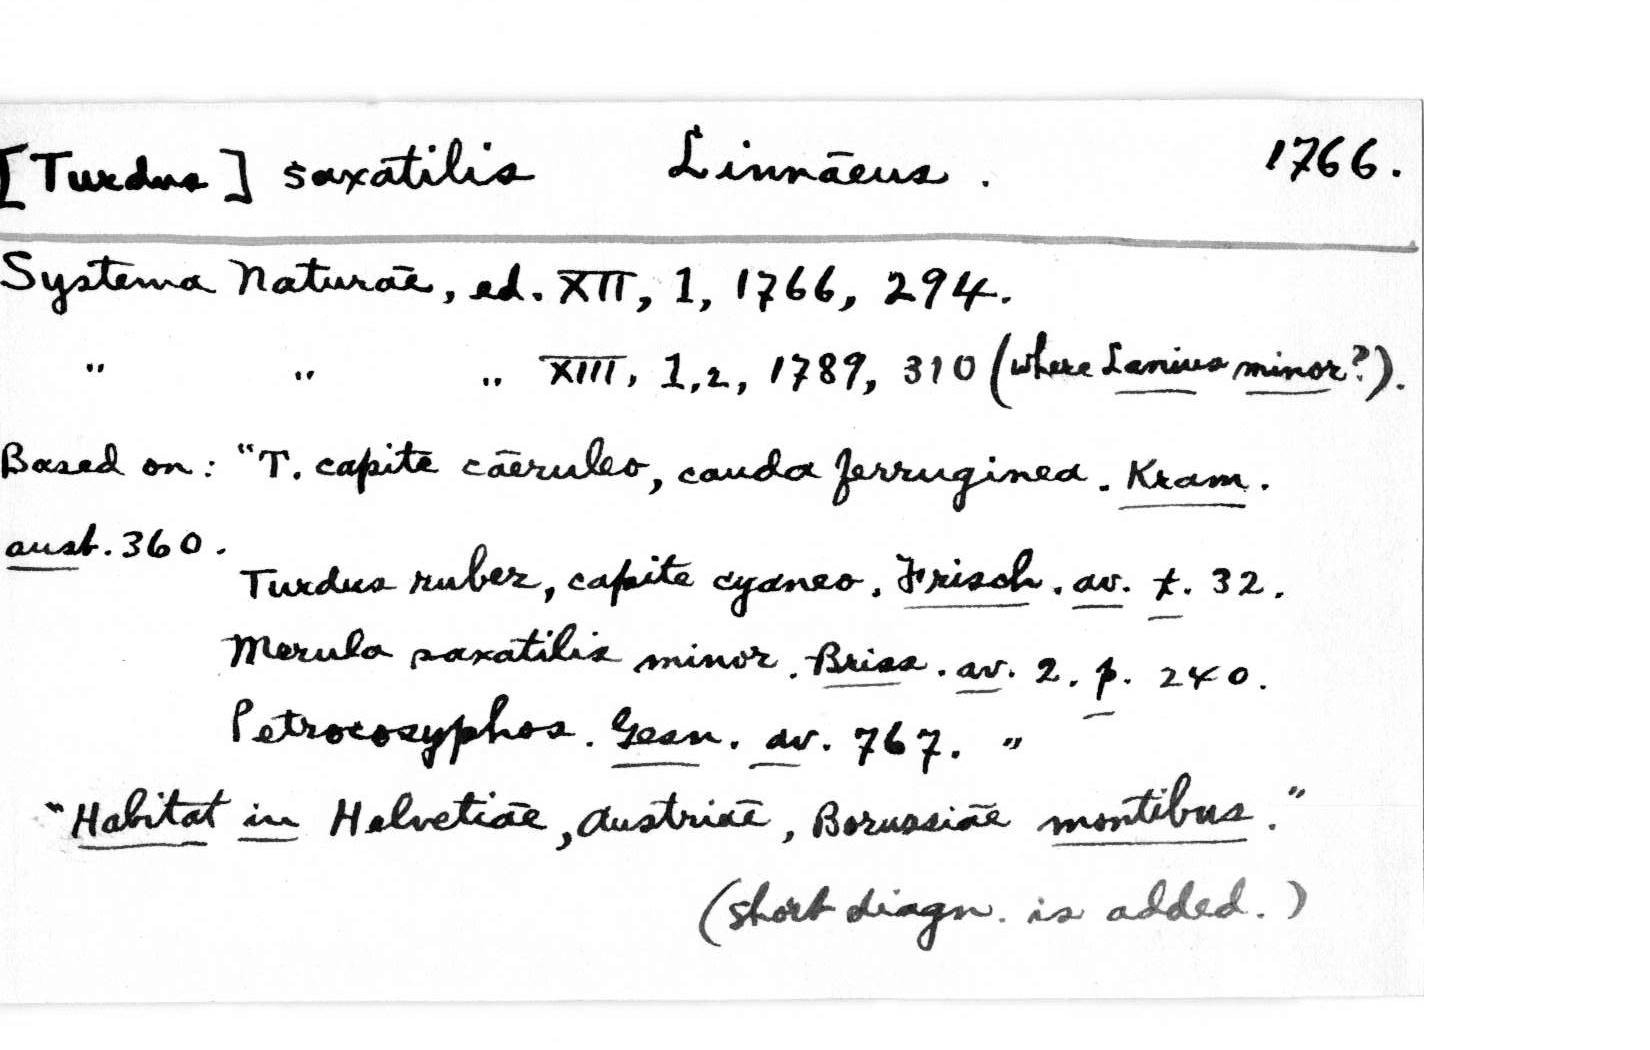 [Turdus] saxatilis Linnaeus. 1766.
Systema Naturae, ed. XII, 1, 1766, 294.
" " " XIII, 1,2, 1789, 310 (where Lanius minor?).
Based on: "T. capite caeruleo, cauda ferruginea. Kram.
aust. 360.
Turdus ruber, capite cyaneo. Frisch. av. t. 32.
Merula saxatilis minor. Briss. av. 2. p. 240.
Petrocosyphos. Gesn. av. 767."
"Habitat in Helvetiae, Austriae, Borussiae montibus."
(short diagn. is added.)